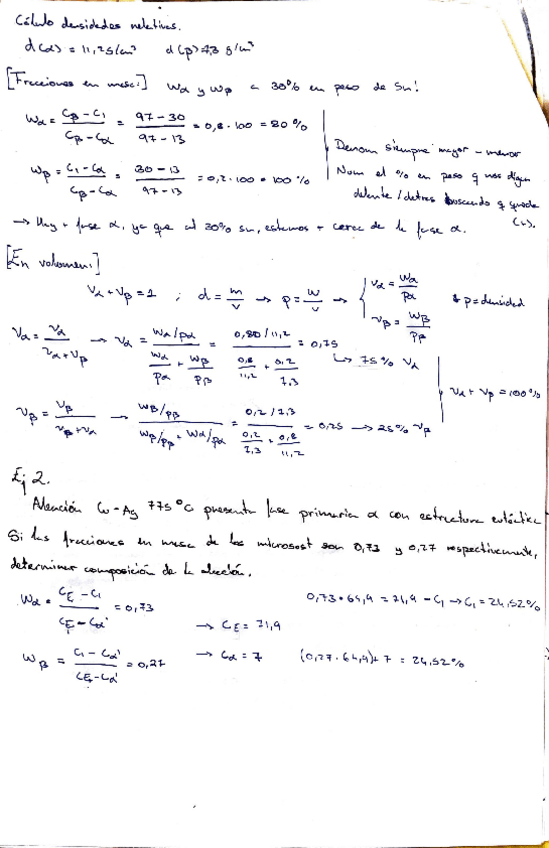 Cálculo densidades relativas.
d(α) = 11,2 g/cm³ d(β) = 7,3 g/cm³
[Fracciones en masa:] Wα y Wβ a 30% en peso de Sn!
Wα = Cβ - C₁ / Cβ - Cα = 97 - 30 / 97 - 13 = 0,8 · 100 = 80 %
Wβ = C₁ - Cα / Cβ - Cα = 30 - 13 / 97 - 13 = 0,2 · 100 = 100 %
Denom siempre mayor - menor
Num el % en peso q nos digan
delante / detras buscando q quede
(+).
→ Hay + fase α, ya que al 30% Sn, estamos + cerca de la fase α.
[En volumen:]
Vα + Vβ = 1 ; d = m/v → ρ = W/v → { Vα = Wα/ρα
Vβ = Wβ/ρβ
ρ = densidad
Vα = vα / vα + vβ → Vα = Wα/ρα / Wα/ρα + Wβ/ρβ = 0,80 / 11,2 / 0,8/11,2 + 0,2/7,3 = 0,75
↳ 75 % Vα
Vα + Vβ = 100 %
Vβ = vβ / vβ + vα → Wβ/ρβ / Wβ/ρβ + Wα/ρα = 0,2 / 7,3 / 0,2/7,3 + 0,8/11,2 = 0,25 → 25 % Vβ
Ej 2.
Aleación Cu - Ag 775 °C presenta fase primaria α con estructura eutéctica
Si las fracciones en masa de los microsost son 0,73 y 0,27 respectivamente,
determinar composición de la aleación.
Wα = CE - C₁ / CE - Cα' = 0,73
0,73 · 64,9 = 71,9 - C₁ → C₁ = 24,52 %
→ CE = 71,9
Wβ = C₁ - Cα' / CE - Cα' = 0,27
→ Cα = 7
(0,27 · 64,9) + 7 = 24,52 %